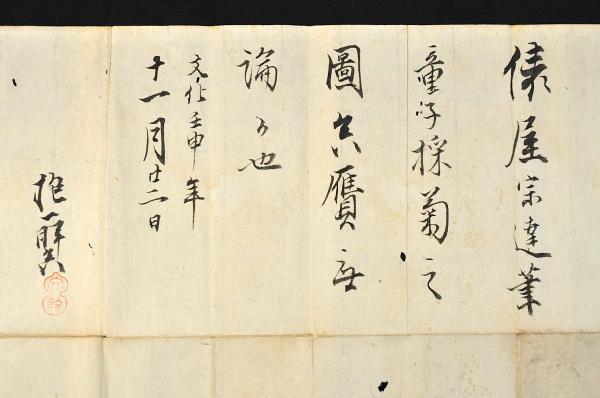 俵屋宗達筆
童子採菊之
圖真贋無
論者也
文化壬申年
十一月廿二日
抱一暉真